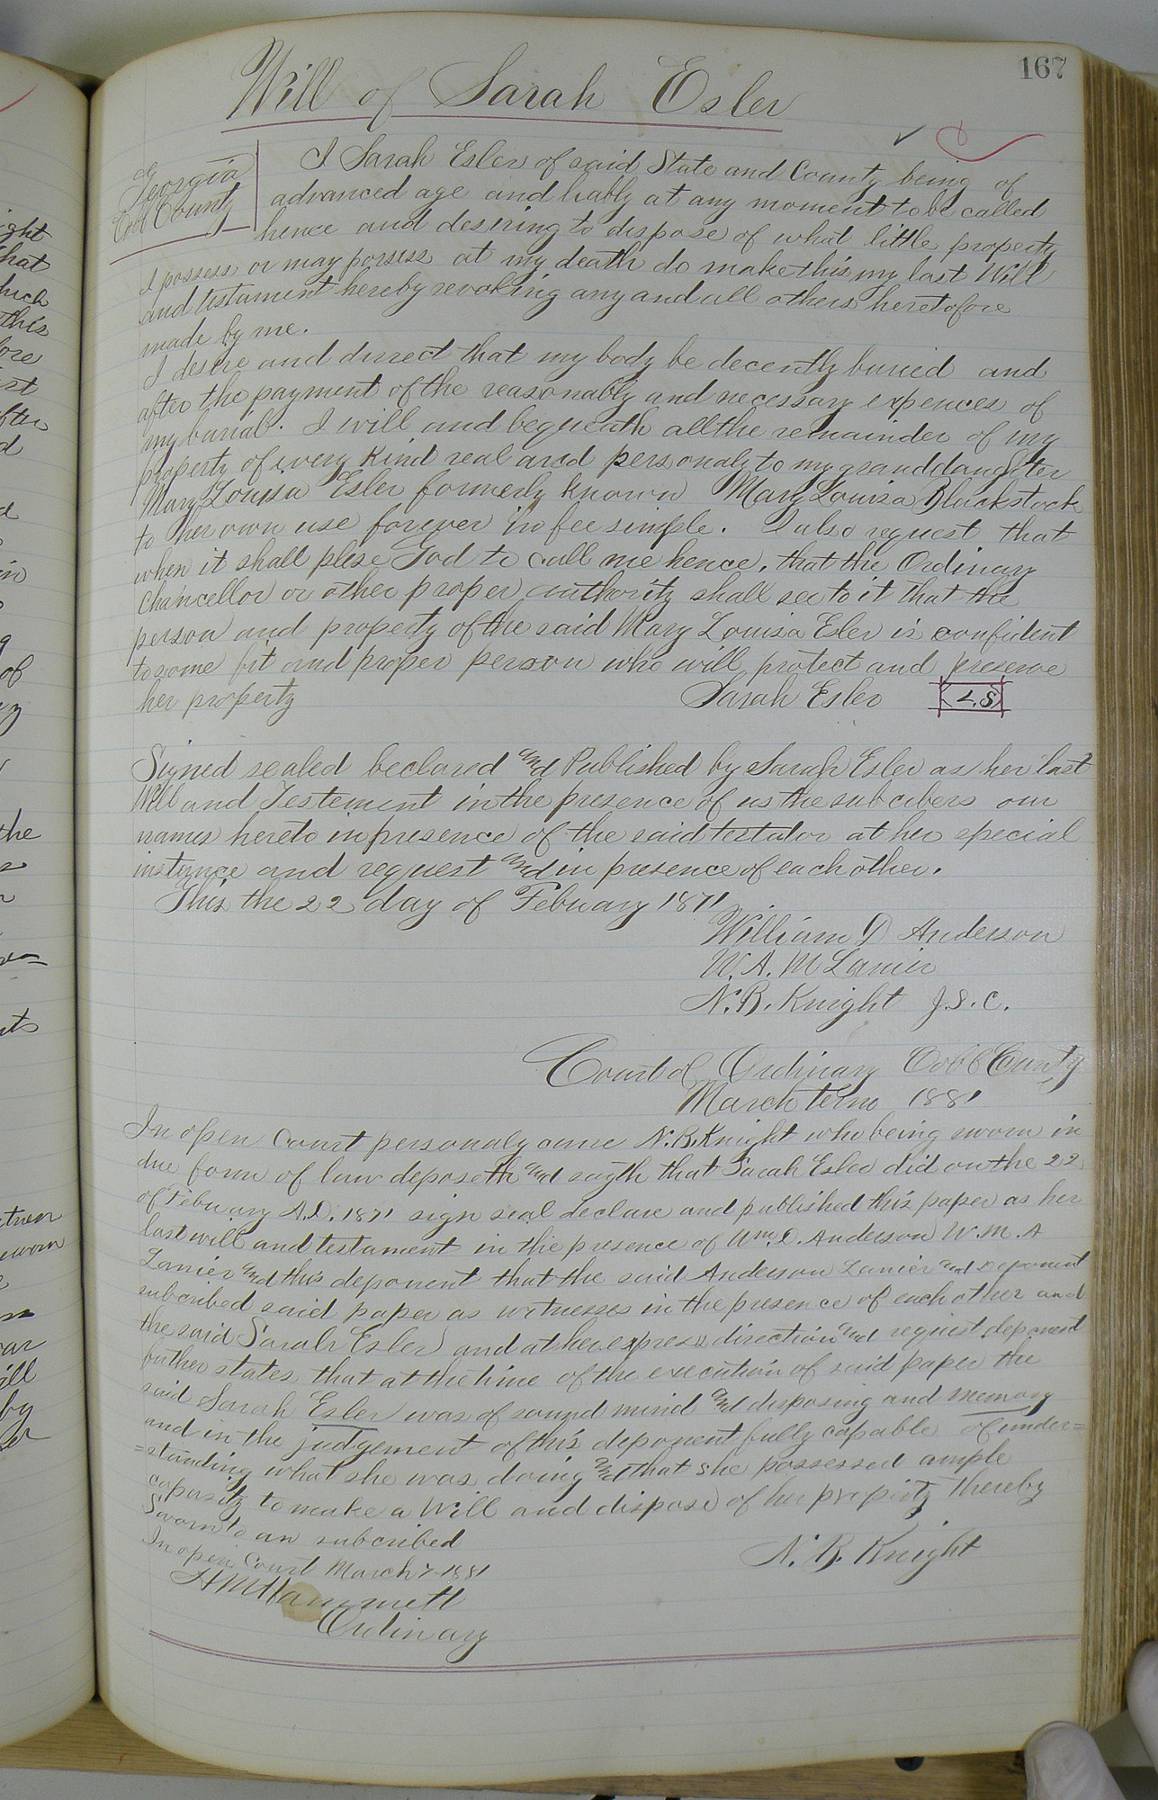 167
Will of Sarah Esler
Georgia
Cobb County
I Sarah Esler of said State and County being of
advanced age and liably at any moment to be called
hence and desiring to dispose of what little property
I possess or may possess at my death do make this my last Will
and testament hereby revoking any and all others heretofore
made by me.
I desire and direct that my body be decently buried and
after the payment of the reasonably and necessary expences of
my burial. I will and bequeath all the remainder of my
property of every kind real and personaly to my granddaughter
Mary Louisa Esler formerly known Mary Louisa Blackstock
to her own use forever in fee simple. I also request that
when it shall plese God to call me hence, that the Ordinary
Chancellor or other proper authority shall see to it that the
person and property of the said Mary Louisa Esler is confident
to some fit and proper person who will protect and preserve
her property Sarah Esler L.S.
Signed sealed declared and Published by Sarah Esler as her last
Will and Testement in the presence of us the subcibers our
names hereto in presence of the said testator at her special
instance and request and in presence of each other.
This the 22 day of Febuary 1871
William D Anderson
W. A. M Lanier
N. B. Knight J.S.C.
Court of Ordinary Cobb County
March term 1881
In open Court personaly came N. B. Knight who being sworn in
due form of law deposeth and sayth that Sarah Esler did on the 22
of Febuary A.D. 1871 sign seal declare and published this paper as her
last will and testament in the presence of Wm. D. Anderson W. M. A
Lanier and this deponent that the said Anderson Lanier and deponent
subcribed said paper as witnesses in the presence of each other and
the said Sarah Esler and at her express direction and request deponent
futher states that at the time of the execution of said paper the
said Sarah Esler was of sound mind and disposing and memory
and in the judgement of this deponent fully capable of under=
=standing what she was doing and that she possessed ample
capasity to make a Will and dispose of her property thereby
Sworn to an subcribed
In open Court March 7 1881 N. B. Knight
H M Hammett
Ordinary